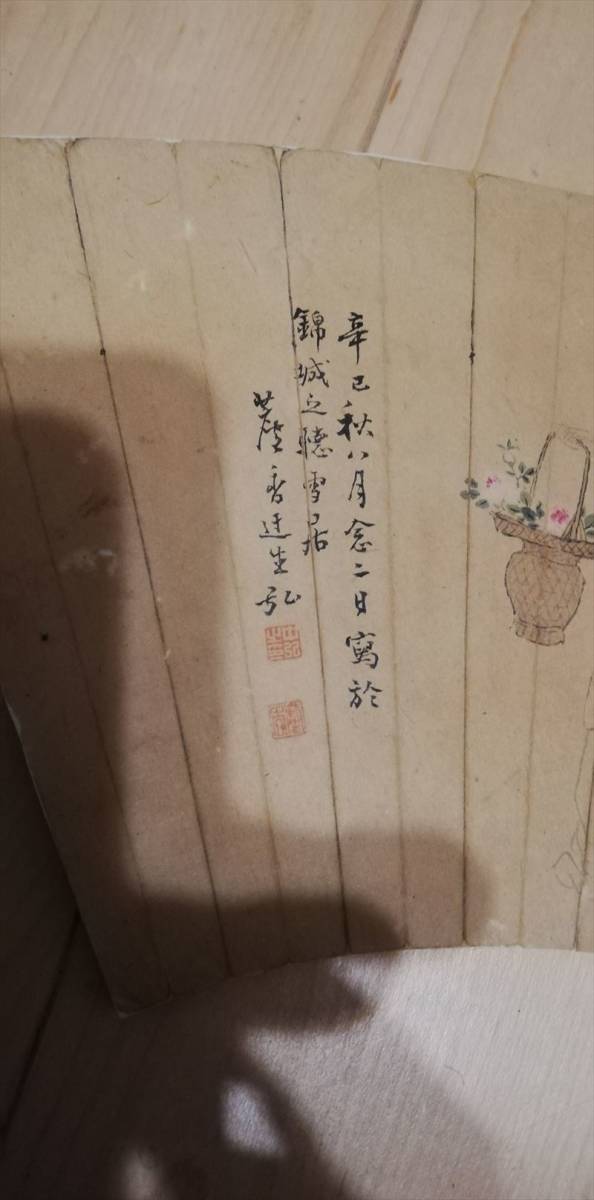 辛巳秋八月念二日寫於
錦城之聽雪居
香迂生弘